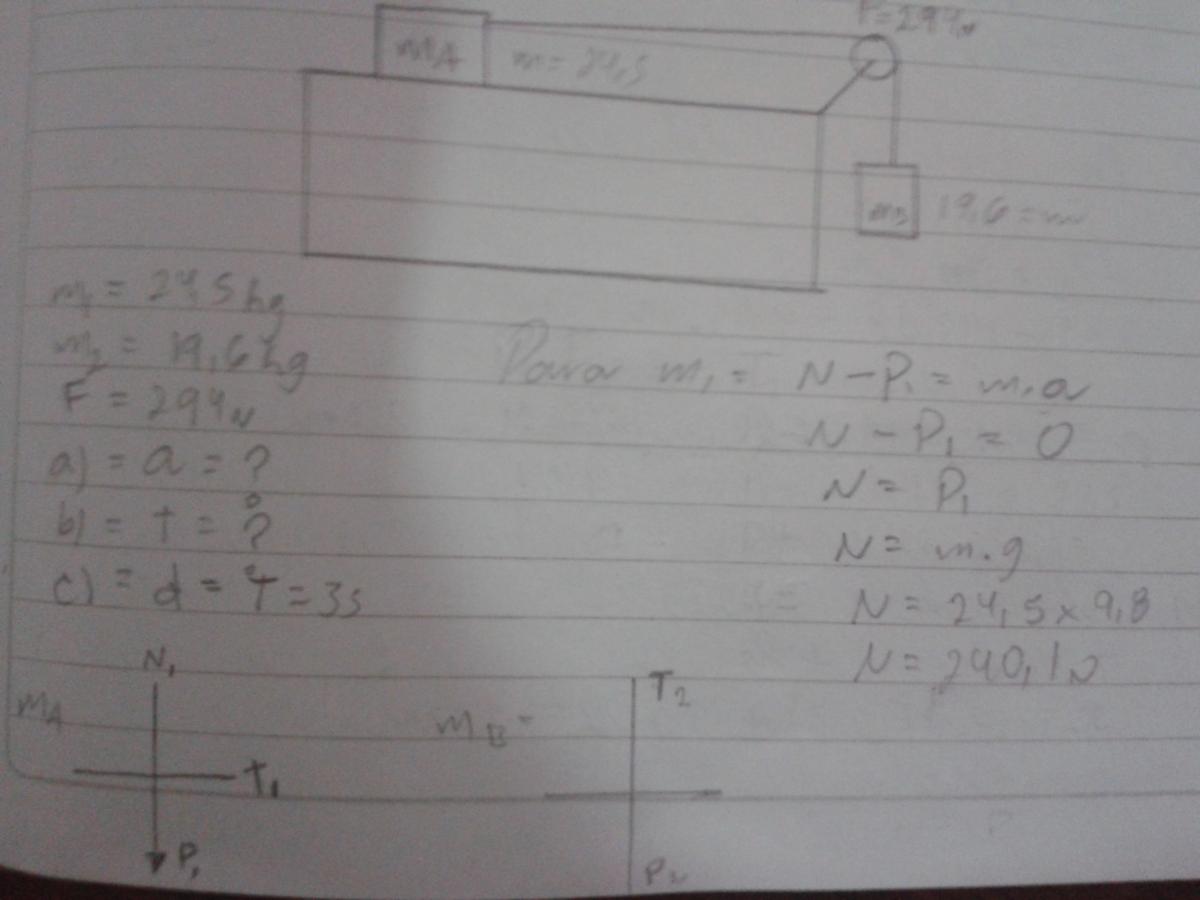 F=294N
mA m=24,5
mB 19,6=m
m1 = 24,5kg
m2 = 19,6kg
F = 294N
a) = a = ?
b) = T = ?
c) = d = T = 3s
Para m1 = N - P1 = m1a
N - P1 = 0
N = P1
N = m.g
N = 24,5 x 9,8
N = 240,1N
N1
mA
T1
P1
mB =
T2
P2